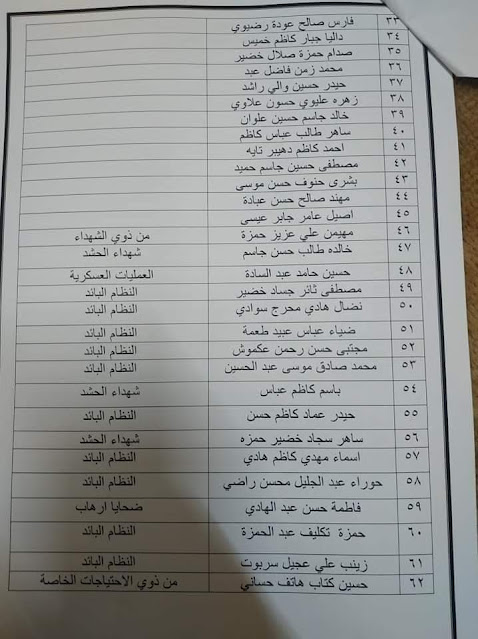 ٣٣ فارس صالح عودة رضيوي
٣٤ داليا جبار كاظم خميس
٣٥ صدام حمزة صلال خضير
٣٦ محمد زمن فاضل عبد
٣٧ حيدر حسين والي راشد
٣٨ زهره عليوي حسون علاوي
٣٩ خالد جاسم حسين علوان
٤٠ ساهر طالب عباس كاظم
٤١ احمد كاظم دهيبر تايه
٤٢ مصطفى حسين جاسم حميد
٤٣ بشرى حنوف حسن موسى
٤٤ مهند صالح حسن عبادة
٤٥ اصيل عامر جابر عيسى
٤٦ مهيمن علي عزيز حمزة من ذوي الشهداء
٤٧ خالده طالب حسن جاسم شهداء الحشد
٤٨ حسين حامد عبد السادة العمليات العسكرية
٤٩ مصطفى ثائر جساد خضير النظام البائد
٥٠ نضال هادي محرج سوادي النظام البائد
٥١ ضياء عباس عبيد طعمة النظام البائد
٥٢ مجتبى حسن رحمن عكموش النظام البائد
٥٣ محمد صادق موسى عبد الحسين النظام البائد
٥٤ باسم كاظم عباس شهداء الحشد
٥٥ حيدر عماد كاظم حسن النظام البائد
٥٦ ساهر سجاد خضير حمزه شهداء الحشد
٥٧ اسماء مهدي كاظم هادي النظام البائد
٥٨ حوراء عبد الجليل محسن راضي النظام البائد
٥٩ فاطمة حسن عبد الهادي ضحايا ارهاب
٦٠ حمزة تكليف عبد الحمزة النظام البائد
٦١ زينب علي عجيل سربوت النظام البائد
٦٢ حسين كتاب هاتف حساني من ذوي الاحتياجات الخاصة